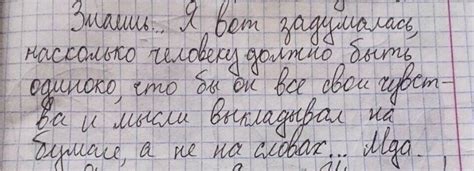 Знаешь... Я вот задумалась,
насколько человеку должно быть
одиноко, что бы он все свои чувст-
ва и мысли выкладывал на
бумаге, а не на словах... Мда.